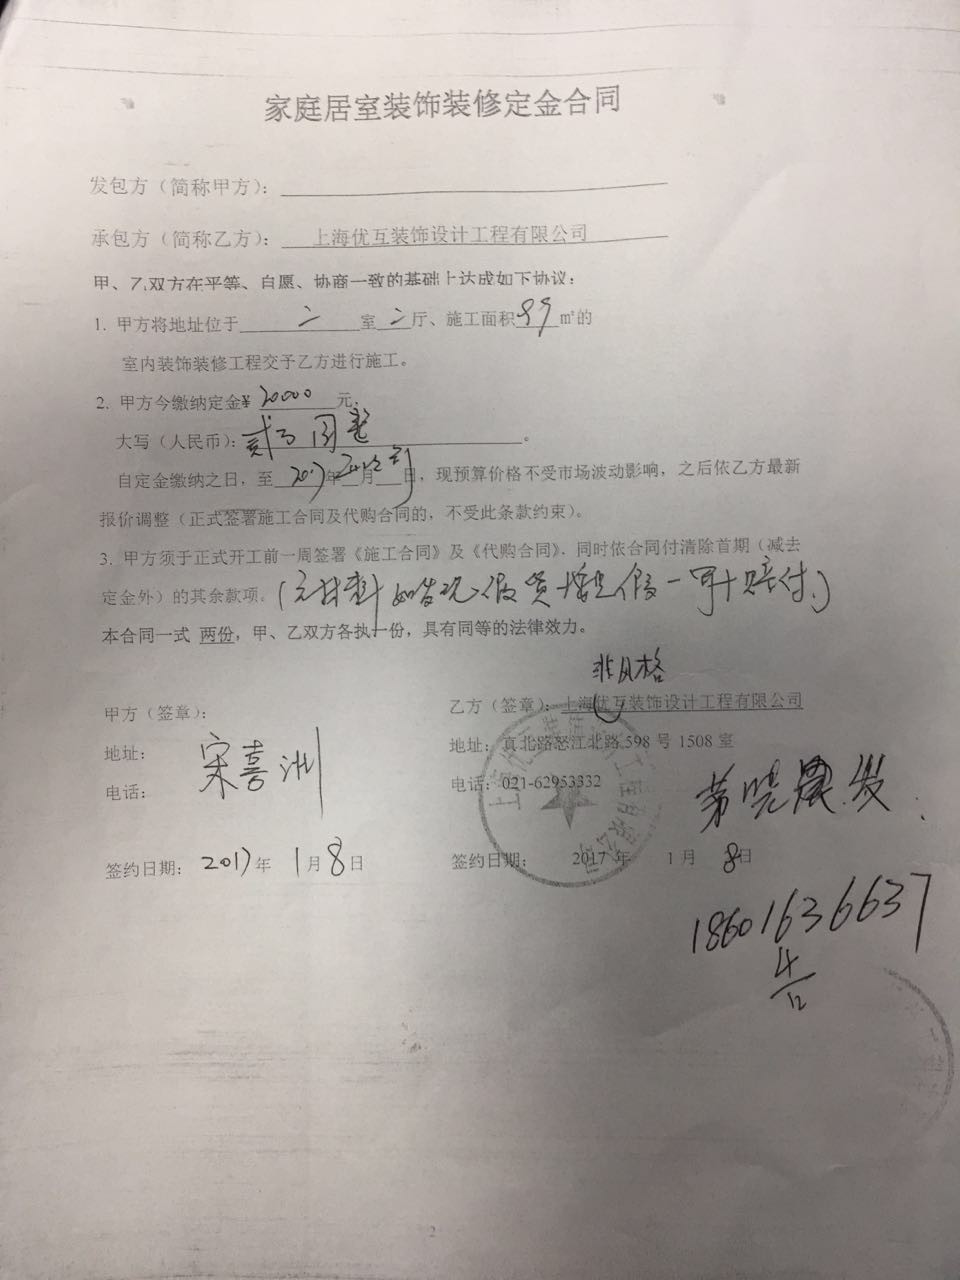 家庭居室装饰装修定金合同
发包方（简称甲方）：
承包方（简称乙方）：上海优互装饰设计工程有限公司
甲、乙双方在平等、自愿、协商一致的基础上达成如下协议：
1. 甲方将地址位于 二 室 二 厅、施工面积 99 ㎡的
室内装饰装修工程交予乙方进行施工。
2. 甲方今缴纳定金¥ 20000 元，
大写（人民币）：贰万圆整。
自定金缴纳之日，至 2017 年 月 日，现预算价格不受市场波动影响，之后依乙方最新
报价调整（正式签署施工合同及代购合同的，不受此条款约束）。
3. 甲方须于正式开工前一周签署《施工合同》及《代购合同》. 同时依合同付清除首期（减去
定金外）的其余款项。（主材料如发现假货 假一罚十赔付）
本合同一式 两份，甲、乙双方各执一份，具有同等的法律效力。
非凡格
甲方（签章）：
乙方（签章）：上海优互装饰设计工程有限公司
地址：
宋喜洲
地址：真北路怒江北路 598 号 1508 室
电话：
电话：021-62953332
茅晓晨
签约日期：2017 年 1 月 8 日
签约日期： 2017 年 1 月 8 日
18601636637
2